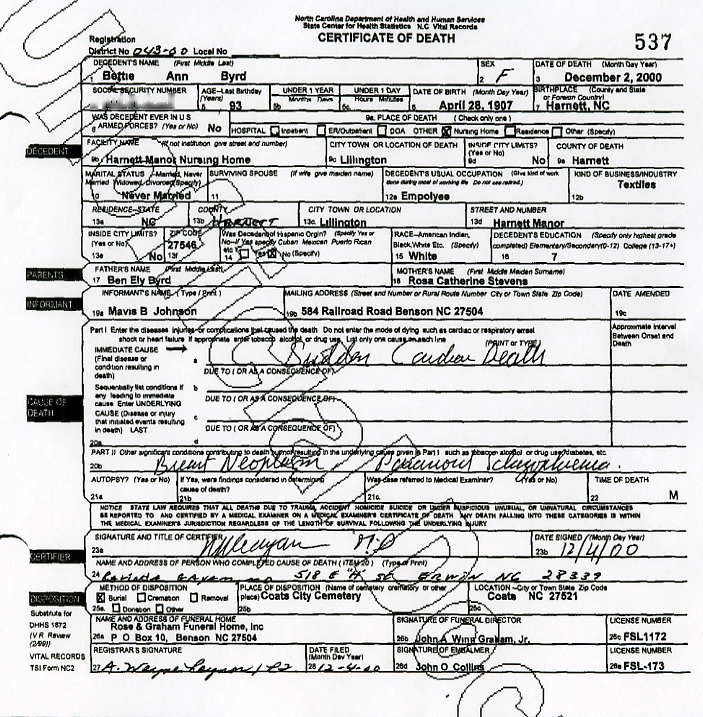 North Carolina Department of Health and Human Services
State Center for Health Statistics N.C. Vital Records
CERTIFICATE OF DEATH
537
Registration
District No 043-00 Local No
DECEDENT'S NAME (First Middle Last)
1 Bettie Ann Byrd
SEX
2 F
DATE OF DEATH (Month Day Year)
3 December 2, 2000
SOCIAL SECURITY NUMBER
AGE--Last Birthday (Years)
5 93
UNDER 1 YEAR
5b Months Days
UNDER 1 DAY
5c Hours Minutes
DATE OF BIRTH (Month Day Year)
6 April 28, 1907
BIRTHPLACE (County and State or Foreign Country)
7 Harnett, NC
WAS DECEDENT EVER IN U S
8 ARMED FORCES? (Yes or No) No
9a. PLACE OF DEATH (Check only one)
HOSPITAL Inpatient ER/Outpatient DOA OTHER Nursing Home Residence Other (Specify)
DECEDENT
FACILITY NAME (If not institution give street and number)
9b Harnett Manor Nursing Home
CITY TOWN OR LOCATION OF DEATH
9c Lillington
INSIDE CITY LIMITS? (Yes or No)
9d No
COUNTY OF DEATH
9e Harnett
MARITAL STATUS - Married, Never Married Widowed, Divorced (Specify)
10 Never Married
SURVIVING SPOUSE (If wife give maiden name)
11
DECEDENT'S USUAL OCCUPATION (Give kind of work done during most of working life Do not use retired.)
12a Empolyee
KIND OF BUSINESS/INDUSTRY
12b Textiles
RESIDENCE--STATE
13a NC
COUNTY
13b Harnett
CITY TOWN OR LOCATION
13c Lillington
STREET AND NUMBER
13d Harnett Manor
INSIDE CITY LIMITS? (Yes or No)
13e No
ZIP CODE
13f 27546
Was Decedent of Hispanic Orgin? (Specify Yes or No--If Yes specify Cuban Mexican Puerto Rican etc
14 Yes No (Specify)
RACE--American Indian, Black, White Etc. (Specify)
15 White
DECEDENT'S EDUCATION (Specify only highest grade completed) Elementary/Secondary(0-12) College (13-17+)
16 7
PARENTS
FATHER'S NAME (First Middle Last)
17 Ben Ely Byrd
MOTHER'S NAME (First Middle Maiden Surname)
18 Rosa Catherine Stevens
INFORMANT
INFORMANT'S NAME (Type / Print)
19a Mavis B Johnson
MAILING ADDRESS (Street and Number or Rural Route Number City or Town State Zip Code)
19b 584 Railroad Road Benson NC 27504
DATE AMENDED
19c
Part I Enter the diseases injuries or complications that caused the death Do not enter the mode of dying such as cardiac or respiratory arrest
shock or heart failure If appropriate enter tobacco alcohol, or drug use. List only one cause on each line
(PRINT or TYPE)
Approximate Interval Between Onset and Death
IMMEDIATE CAUSE
(Final disease or condition resulting in death)
a Sudden Cardiac Death
DUE TO (OR AS A CONSEQUENCE OF)
b
DUE TO (OR AS A CONSEQUENCE OF)
c
DUE TO (OR AS A CONSEQUENCE OF)
d
CAUSE OF DEATH
Sequentially list conditions if any leading to immediate cause Enter UNDERLYING CAUSE (Disease or injury that initiated events resulting in death) LAST
20a
PART II Other significant conditions contributing to death but not resulting in the underlying cause given in Part I such as tobacco alcohol or drug use/diabetes, etc.
20b Breast Neoplasm Paranoid Schizophrenia.
AUTOPSY? (Yes or No)
21a
If Yes, were findings considered in determining cause of death?
21b
Was case referred to Medical Examiner? (Yes or No)
21c
TIME OF DEATH
22 M
NOTICE STATE LAW REQUIRES THAT ALL DEATHS DUE TO TRAUMA ACCIDENT HOMICIDE SUICIDE OR UNDER SUSPICIOUS UNUSUAL, OR UNNATURAL CIRCUMSTANCES
BE REPORTED TO AND CERTIFIED BY A MEDICAL EXAMINER ON A MEDICAL EXAMINER'S CERTIFICATE OF DEATH ANY DEATH FALLING INTO THESE CATEGORIES IS WITHIN
THE MEDICAL EXAMINER'S JURISDICTION REGARDLESS OF THE LENGTH OF SURVIVAL FOLLOWING THE UNDERLYING INJURY
CERTIFIER
SIGNATURE AND TITLE OF CERTIFIER
23a
DATE SIGNED (Month Day Year)
23b 12/4/00
NAME AND ADDRESS OF PERSON WHO COMPLETED CAUSE OF DEATH (ITEM 20) (Type or Print)
24 518 E "H" St. ERWIN NC 28339
DISPOSITION
METHOD OF DISPOSITION
Burial Cremation Removal
25a. Donation Other
PLACE OF DISPOSITION (Name of cemetery crematory or other place)
Coats City Cemetery
25b
LOCATION--City or Town State Zip Code
Coats NC 27521
25c
Substitute for
DHHS 1872
(V R Review
(2/99))
VITAL RECORDS
TSI Form NC2
NAME AND ADDRESS OF FUNERAL HOME
Rose & Graham Funeral Home, Inc
26a P O Box 10, Benson NC 27504
SIGNATURE OF FUNERAL DIRECTOR
26b John A Winn Graham, Jr.
LICENSE NUMBER
26c FSL1172
REGISTRAR'S SIGNATURE
27
DATE FILED (Month Day Year)
28 12-4-00
SIGNATURE OF EMBALMER
26d John O Collins
LICENSE NUMBER
26e FSL-173